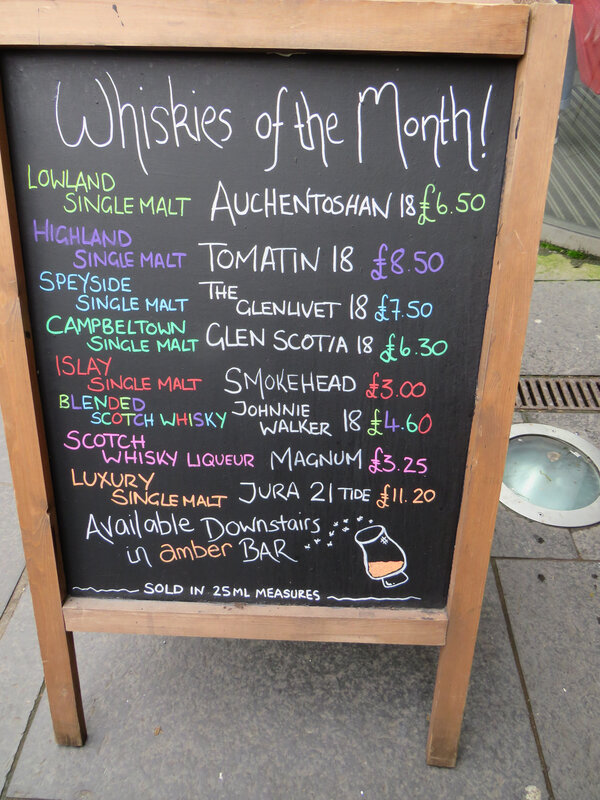 Whiskies of the Month!
LOWLAND
SINGLE MALT AUCHENTOSHAN 18 £6.50
HIGHLAND
SINGLE MALT TOMATIN 18 £8.50
SPEYSIDE
SINGLE MALT THE GLENLIVET 18 £7.50
CAMPBELTOWN
SINGLE MALT GLEN SCOTIA 18 £6.30
ISLAY
SINGLE MALT SMOKEHEAD £3.00
BLENDED
SCOTCH WHISKY JOHNNIE WALKER 18 £4.60
SCOTCH
WHISKY LIQUEUR MAGNUM £3.25
LUXURY
SINGLE MALT JURA 21 TIDE £11.20
Available Downstairs
in amber BAR
SOLD IN 25ML MEASURES